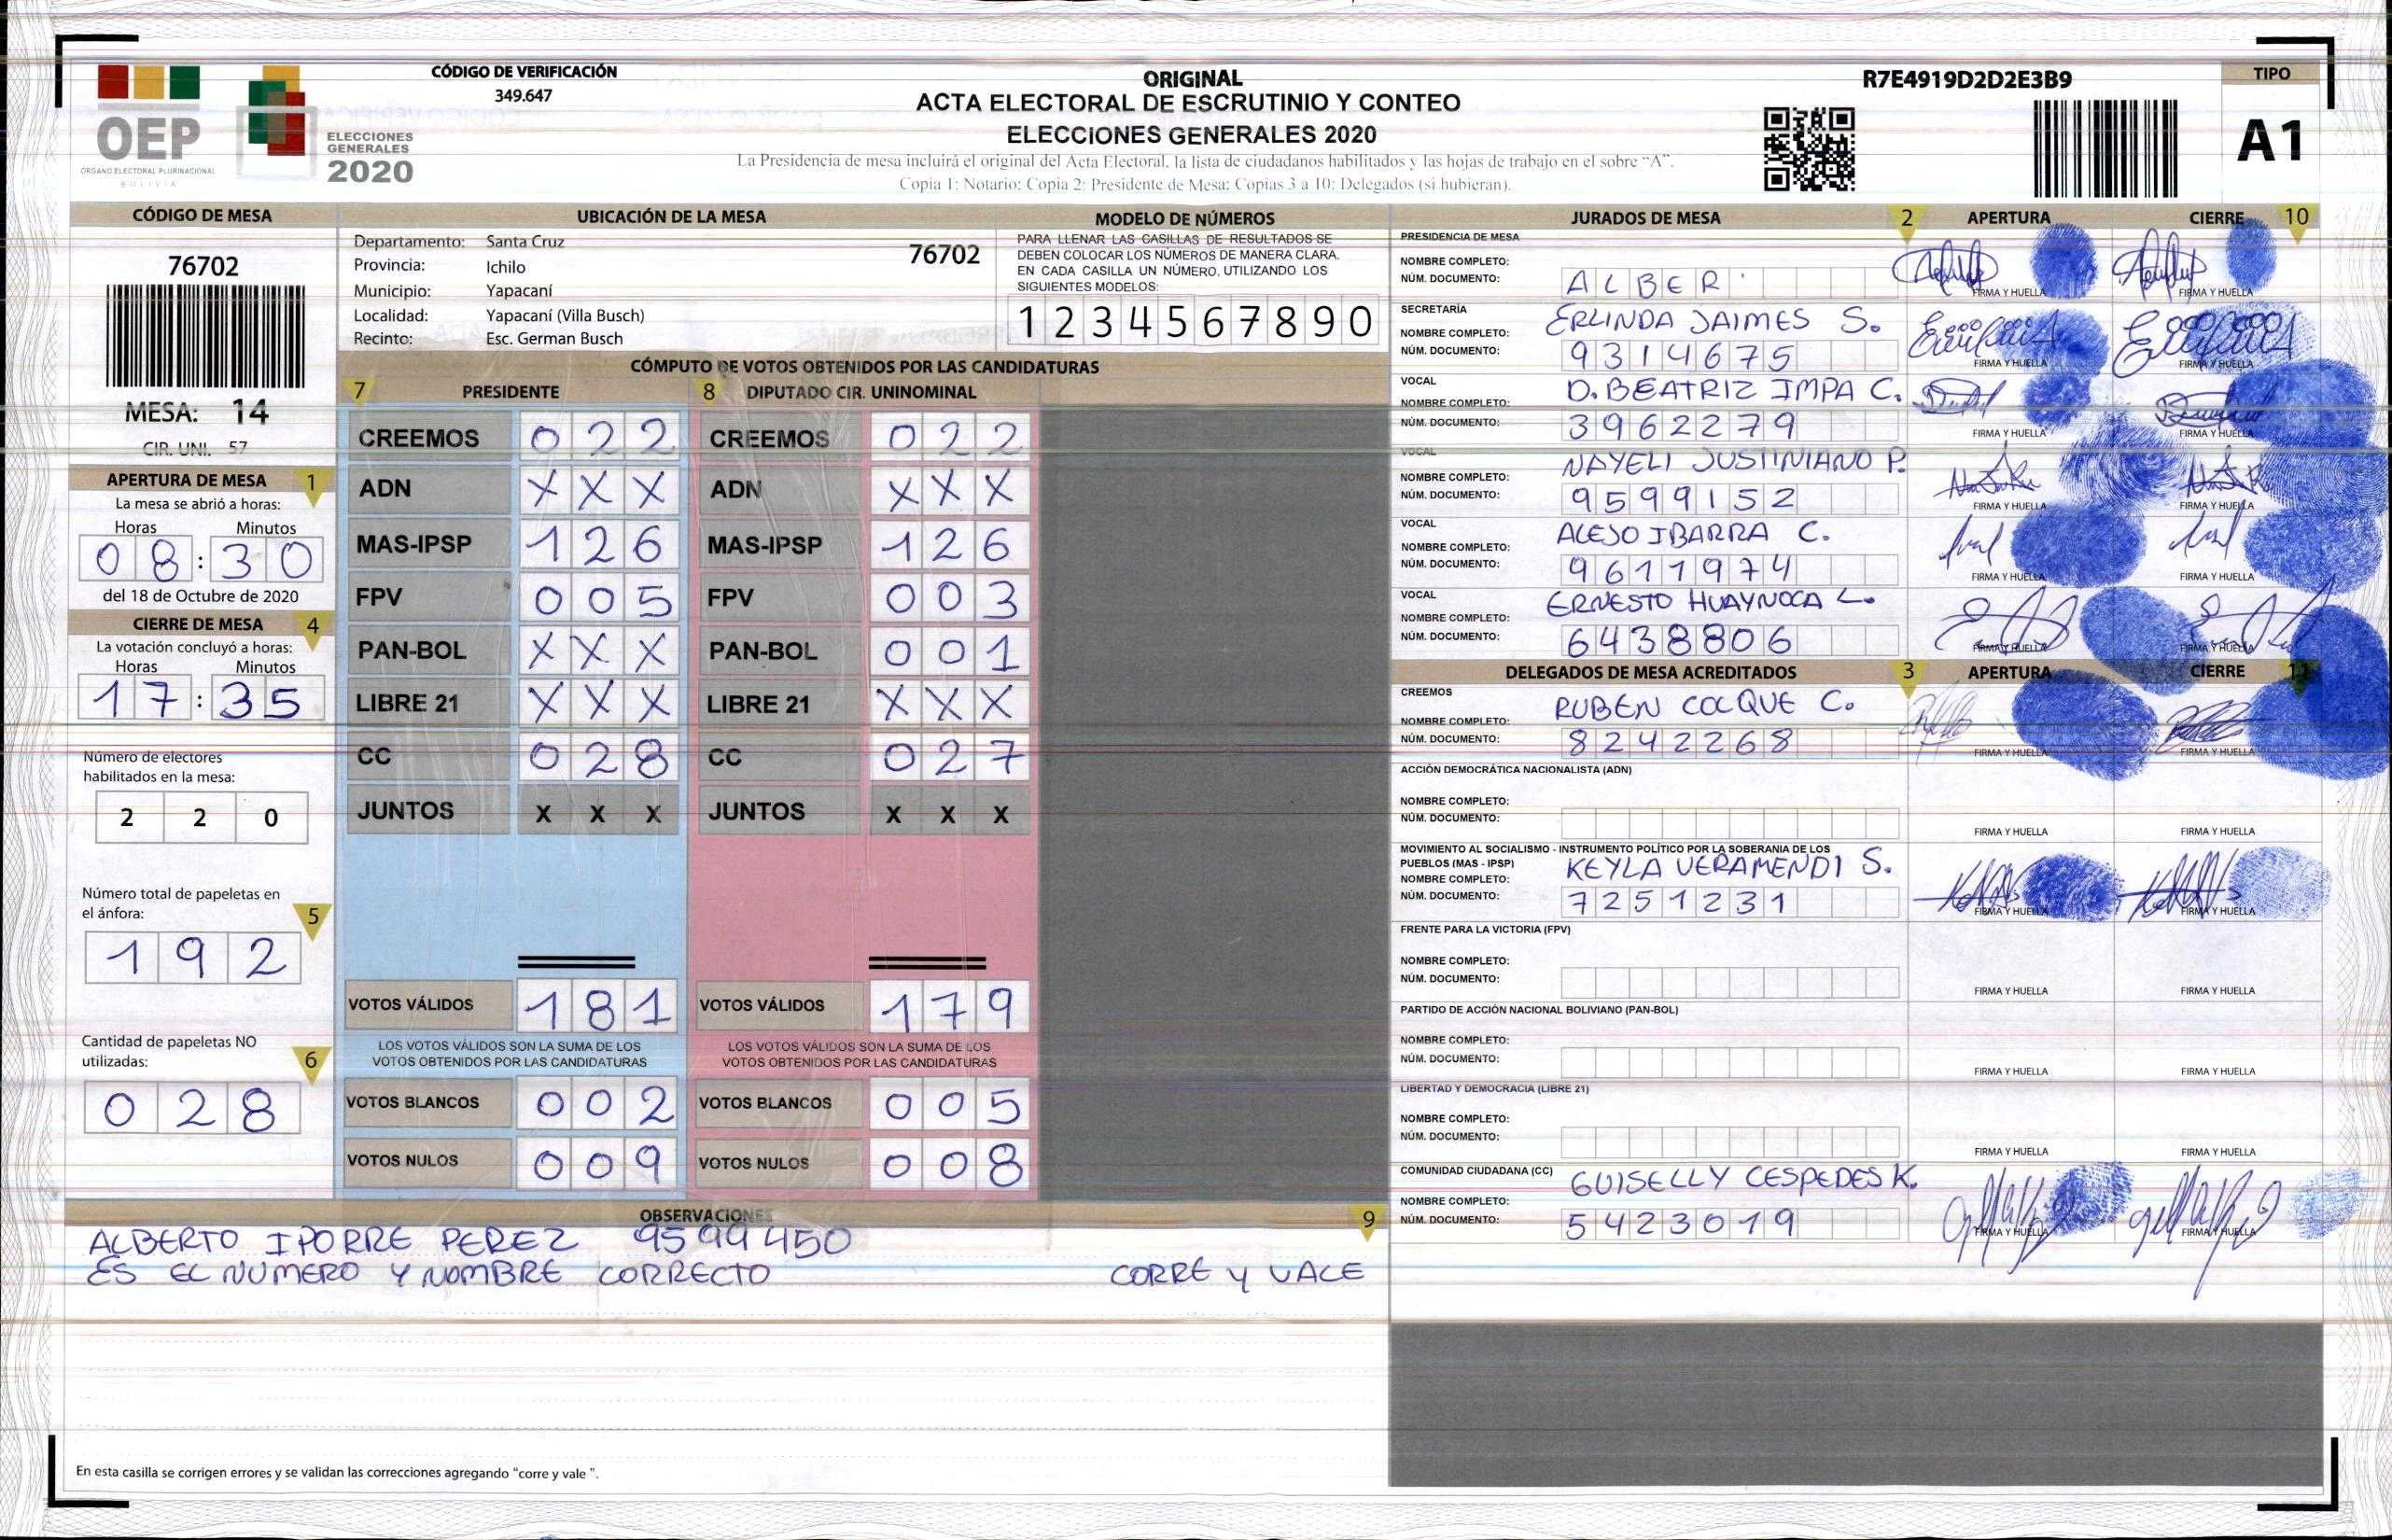 OEP
ORGANO ELECTORAL PLURINACIONAL
BOLIVIA
ELECCIONES
GENERALES
2020
CÓDIGO DE VERIFICACIÓN
349.647
ORIGINAL
ACTA ELECTORAL DE ESCRUTINIO Y CONTEO
ELECCIONES GENERALES 2020
La Presidencia de mesa incluirá el original del Acta Electoral, la lista de ciudadanos habilitados y las hojas de trabajo en el sobre “A”.
Copia 1: Notario; Copia 2: Presidente de Mesa; Copias 3 a 10: Delegados (si hubieran).
R7E4919D2D2E3B9
TIPO
A1
CÓDIGO DE MESA
76702
MESA: 14
CIR. UNI. 57
APERTURA DE MESA 1
La mesa se abrió a horas:
Horas Minutos
08:30
del 18 de Octubre de 2020
CIERRE DE MESA 4
La votación concluyó a horas:
Horas Minutos
17:35
Número de electores
habilitados en la mesa:
2 2 0
Número total de papeletas en
el ánfora: 5
192
Cantidad de papeletas NO
utilizadas: 6
028
UBICACIÓN DE LA MESA
Departamento: Santa Cruz 76702
Provincia: Ichilo
Municipio: Yapacaní
Localidad: Yapacaní (Villa Busch)
Recinto: Esc. German Busch
MODELO DE NÚMEROS
PARA LLENAR LAS CASILLAS DE RESULTADOS SE
DEBEN COLOCAR LOS NÚMEROS DE MANERA CLARA,
EN CADA CASILLA UN NÚMERO, UTILIZANDO LOS
SIGUIENTES MODELOS:
1 2 3 4 5 6 7 8 9 0
CÓMPUTO DE VOTOS OBTENIDOS POR LAS CANDIDATURAS
7 PRESIDENTE 8 DIPUTADO CIR. UNINOMINAL
CREEMOS 022 CREEMOS 022
ADN XXX ADN XXX
MAS-IPSP 126 MAS-IPSP 126
FPV 005 FPV 003
PAN-BOL XXX PAN-BOL 001
LIBRE 21 XXX LIBRE 21 XXX
CC 028 CC 027
JUNTOS X X X JUNTOS X X X
VOTOS VÁLIDOS 181 VOTOS VÁLIDOS 179
LOS VOTOS VÁLIDOS SON LA SUMA DE LOS LOS VOTOS VÁLIDOS SON LA SUMA DE LOS
VOTOS OBTENIDOS POR LAS CANDIDATURAS VOTOS OBTENIDOS POR LAS CANDIDATURAS
VOTOS BLANCOS 002 VOTOS BLANCOS 005
VOTOS NULOS 009 VOTOS NULOS 008
OBSERVACIONES 9
ALBERTO IPORRE PEREZ 9599450
ES EL NUMERO Y NOMBRE CORRECTO CORRE Y VALE
En esta casilla se corrigen errores y se validan las correcciones agregando “corre y vale ”.
JURADOS DE MESA 2 APERTURA CIERRE 10
PRESIDENCIA DE MESA
NOMBRE COMPLETO:
NÚM. DOCUMENTO: ALBER
FIRMA Y HUELLA FIRMA Y HUELLA
SECRETARÍA
NOMBRE COMPLETO: ERLINDA JAIMES S.
NÚM. DOCUMENTO: 9314675
FIRMA Y HUELLA FIRMA Y HUELLA
VOCAL
NOMBRE COMPLETO: D. BEATRIZ IMPA C.
NÚM. DOCUMENTO: 3962279
FIRMA Y HUELLA FIRMA Y HUELLA
VOCAL
NOMBRE COMPLETO: NAYELI JUSTINIANO P.
NÚM. DOCUMENTO: 9599152
FIRMA Y HUELLA FIRMA Y HUELLA
VOCAL
NOMBRE COMPLETO: ALEJO IBARRA C.
NÚM. DOCUMENTO: 9611974
FIRMA Y HUELLA FIRMA Y HUELLA
VOCAL
NOMBRE COMPLETO: ERNESTO HUAYNOCA L.
NÚM. DOCUMENTO: 6438806
FIRMA Y HUELLA FIRMA Y HUELLA
DELEGADOS DE MESA ACREDITADOS 3 APERTURA CIERRE 11
CREEMOS
NOMBRE COMPLETO: RUBEN COLQUE C.
NÚM. DOCUMENTO: 8242268
FIRMA Y HUELLA FIRMA Y HUELLA
ACCIÓN DEMOCRÁTICA NACIONALISTA (ADN)
NOMBRE COMPLETO:
NÚM. DOCUMENTO:
FIRMA Y HUELLA FIRMA Y HUELLA
MOVIMIENTO AL SOCIALISMO - INSTRUMENTO POLÍTICO POR LA SOBERANIA DE LOS
PUEBLOS (MAS - IPSP)
NOMBRE COMPLETO: KEYLA VERAMENDI S.
NÚM. DOCUMENTO: 7251231
FIRMA Y HUELLA FIRMA Y HUELLA
FRENTE PARA LA VICTORIA (FPV)
NOMBRE COMPLETO:
NÚM. DOCUMENTO:
FIRMA Y HUELLA FIRMA Y HUELLA
PARTIDO DE ACCIÓN NACIONAL BOLIVIANO (PAN-BOL)
NOMBRE COMPLETO:
NÚM. DOCUMENTO:
FIRMA Y HUELLA FIRMA Y HUELLA
LIBERTAD Y DEMOCRACIA (LIBRE 21)
NOMBRE COMPLETO:
NÚM. DOCUMENTO:
FIRMA Y HUELLA FIRMA Y HUELLA
COMUNIDAD CIUDADANA (CC)
NOMBRE COMPLETO: GUISELLY CESPEDES K.
NÚM. DOCUMENTO: 5423019
FIRMA Y HUELLA FIRMA Y HUELLA